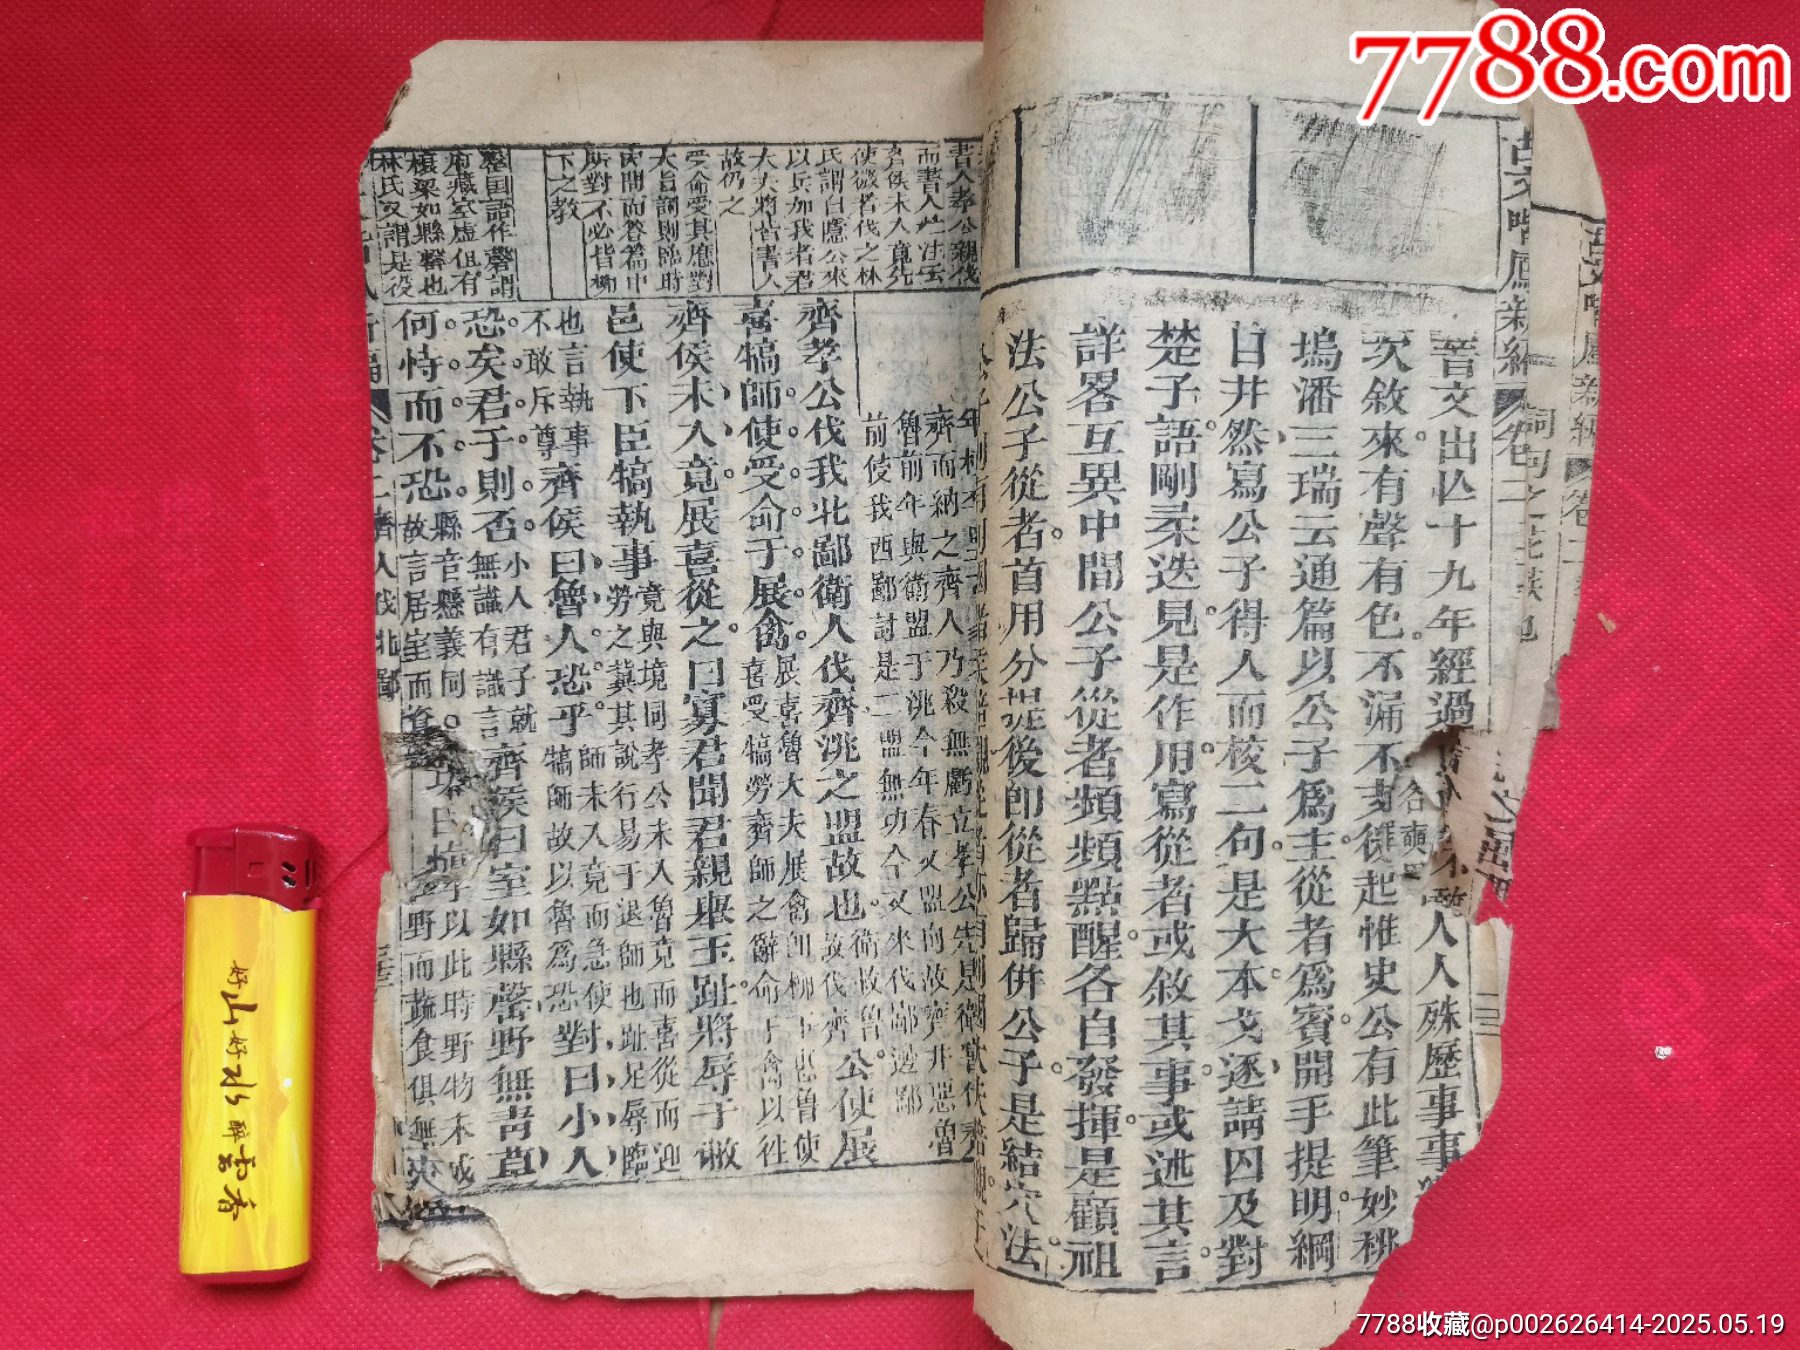 7788.com
古文喈鳳新編 卷二
晉文出亾十九年經過
人人殊歷事事
次敘來有聲有色不漏不支從起惟史公有此筆妙
塢潘三瑞云通篇以公子爲主從者爲賓開手提明綱
目井然寫公子得人而校二句是大本戈逐請囚及對
楚子語剛柔迭見是作用寫從者或敘其事或述其言
詳畧互異中間公子從者頻頻點醒各自發揮是顧祖
法公子從者首用分提後卽從者歸併公子是結穴法
齊而納之齊人乃殺無虧立孝公
魯前年與衛盟于洮今年春又盟向故齊井惡魯
前伎我西鄙討是二盟無功今又來伐鄙邊鄙
齊孝公伐我北鄙衛人伐齊洮之盟故也
公使展
喜犒師使受命于展禽
展喜魯大夫展禽卽柳下惠魯使
喜受犒勞齊師之辭命于禽以往
齊侯未入竟展喜從之曰寡君聞君親舉玉趾將辱于敝
邑使下臣犒執事
竟與境同孝公未入魯竟而喜從而迎
勞之冀其說行易于退師也趾足辱臨
也言執事
不敢斥尊
齊侯曰魯人恐乎
師未入竟而急使
犒師故以魯爲恐
對曰小人
恐矣君子則否
小人君子就
無識有識言
齊侯曰室如縣罄野無靑草
何恃而不恐
縣音懸義同
故言居室而
以此時野物未成
野而蔬食俱無
書人孝公親伐
而書人杜注云
各侯未入竟先
使微者伐之林
氏謂自隱公來
以兵加我者君
大夫將皆書人
故仍之
受命受其應對
大旨詞則臨時
因問而答篇中
所對不必皆柳
下之教
罄国語作磬謂
府藏空虛但有
榱梁如縣罄也
林氏又謂是役
卷二 齊人伐北鄙
好山好水醉雲香
7788收藏@p002626414-2025.05.19